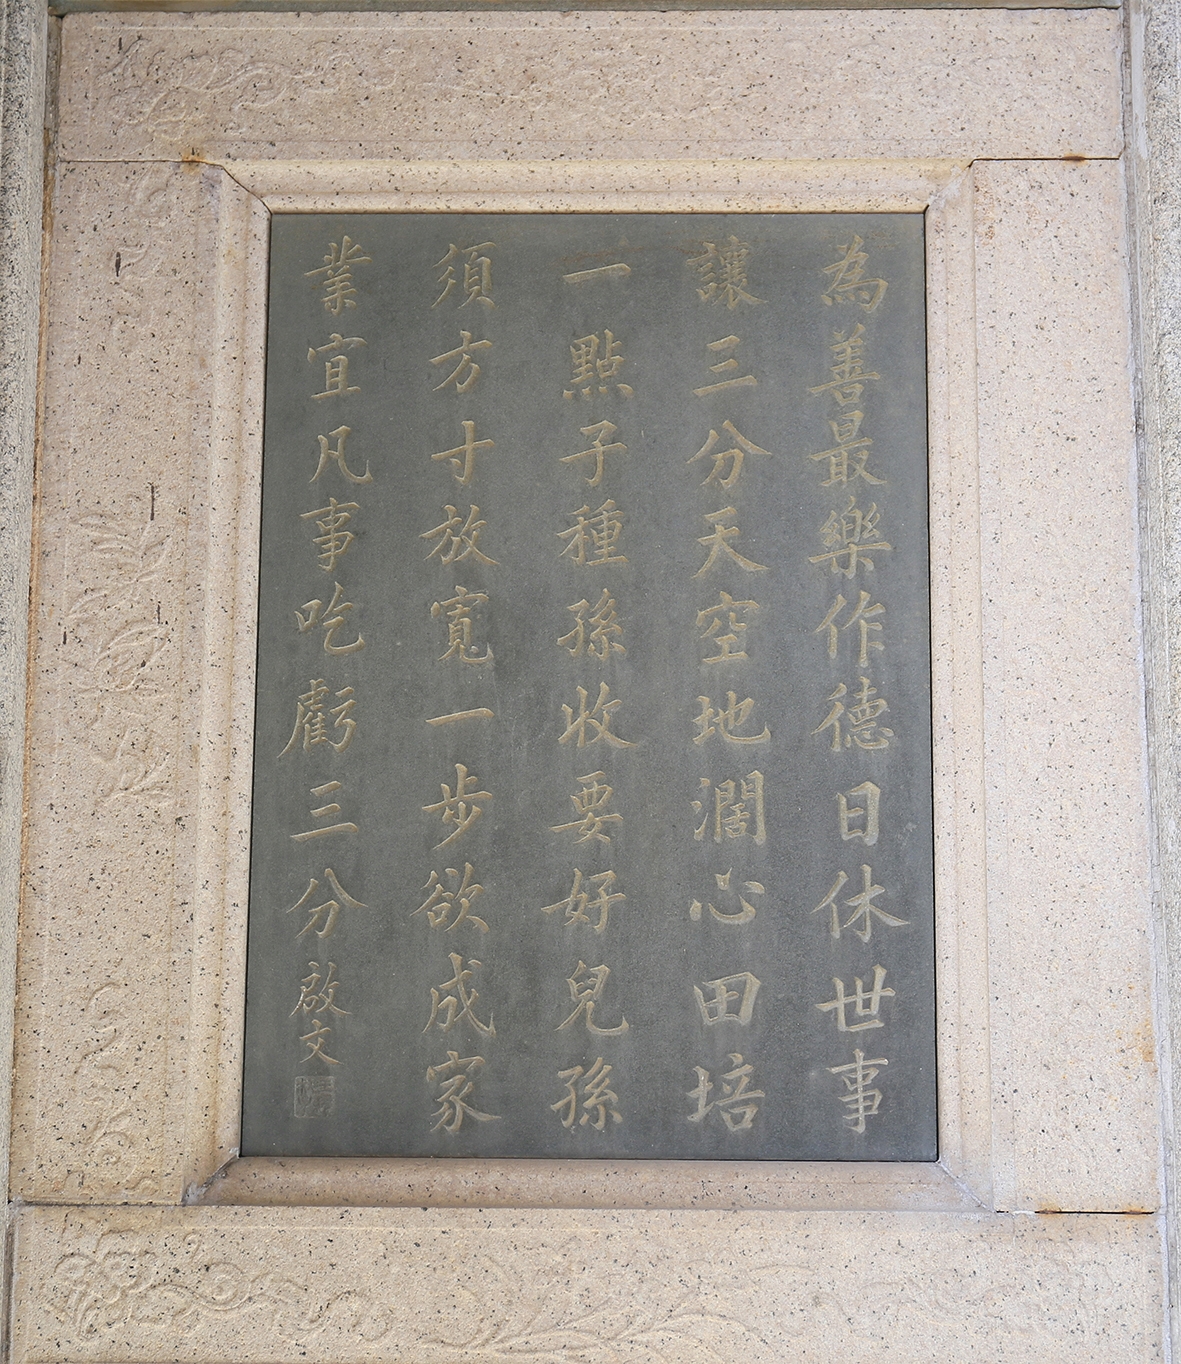 為善最樂作德日休世事
讓三分天空地濶心田培
一點子種孫收要好兒孫
須方寸放寬一步欲成家
業宜凡事吃虧三分啟文